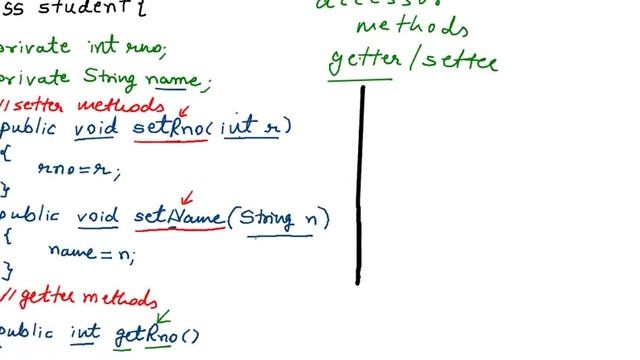 ss student {
private int rno;
private String name;
// setter methods
public void setRno(int r)
{
rno=r;
}
public void setName(String n)
{
name=n;
}
// getter methods
public int getRno()
methods
getter/setter